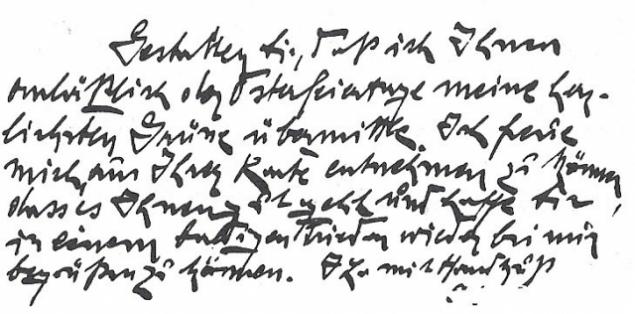 Gestatten Sie, daß ich Ihnen
anläßlich der Osterfeiertage meine herz-
lichsten Grüße übermittle. Ich freue
mich, aus Ihrer Karte entnehmen zu können,
dass es Ihnen gut geht und hoffe Sie
in einem Frieden wieder bei mir
begrüßen zu können. Ihr mit Handkuß